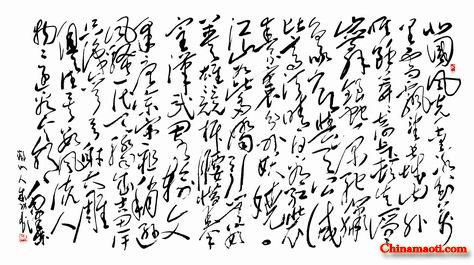 北国风光千里冰封万
里雪飘望长城内外
惟余莽莽大河上下顿
失滔滔山舞银蛇原驰蜡
象欲与天公试
比高须晴日看红装
素裹分外妖娆
江山如此多娇引无数
英雄竞折腰惜秦
皇汉武略输文
采唐宗宋祖稍逊
风骚一代天骄成吉思汗
只识弯弓射大雕
俱往矣数风流人
物还看今朝
Chinamaoti.com